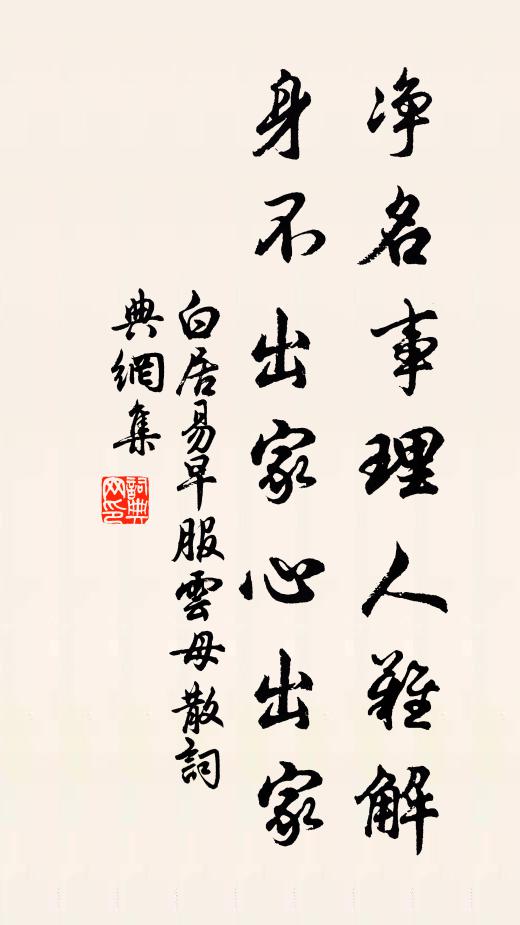 净名事理人難解
身不出家心出家
白居易早服雲母散詞
典網集
詞典
网印